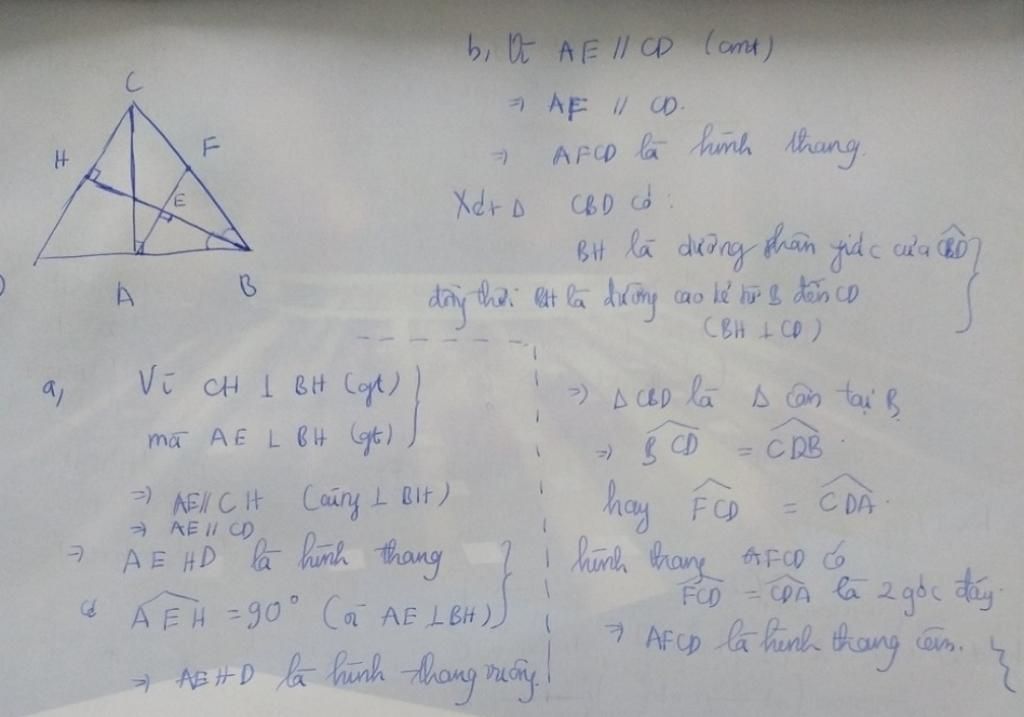 C
H
F
E
D
A
B
b, Vì AE // CD (cmt)
⇒ AF // CD.
⇒ AFCD là hình thang.
Xét Δ CBD có :
BH là đường phân giác của CBD
đồng thời BH là đường cao kẻ từ B đến CD
(BH ⊥ CD)
a, Vì CH ⊥ BH (gt)
mà AE ⊥ BH (gt)
⇒ AE // CH (cùng ⊥ BH)
⇒ AE // CD
⇒ AEHD là hình thang
có AEH = 90° (vì AE ⊥ BH)
⇒ AEHD là hình thang vuông.
⇒ Δ CBD là Δ cân tại B
⇒ BCD = CDB.
hay FCD = CDA.
hình thang AFCD có
FCD = CDA là 2 góc đáy.
⇒ AFCD là hình thang cân.